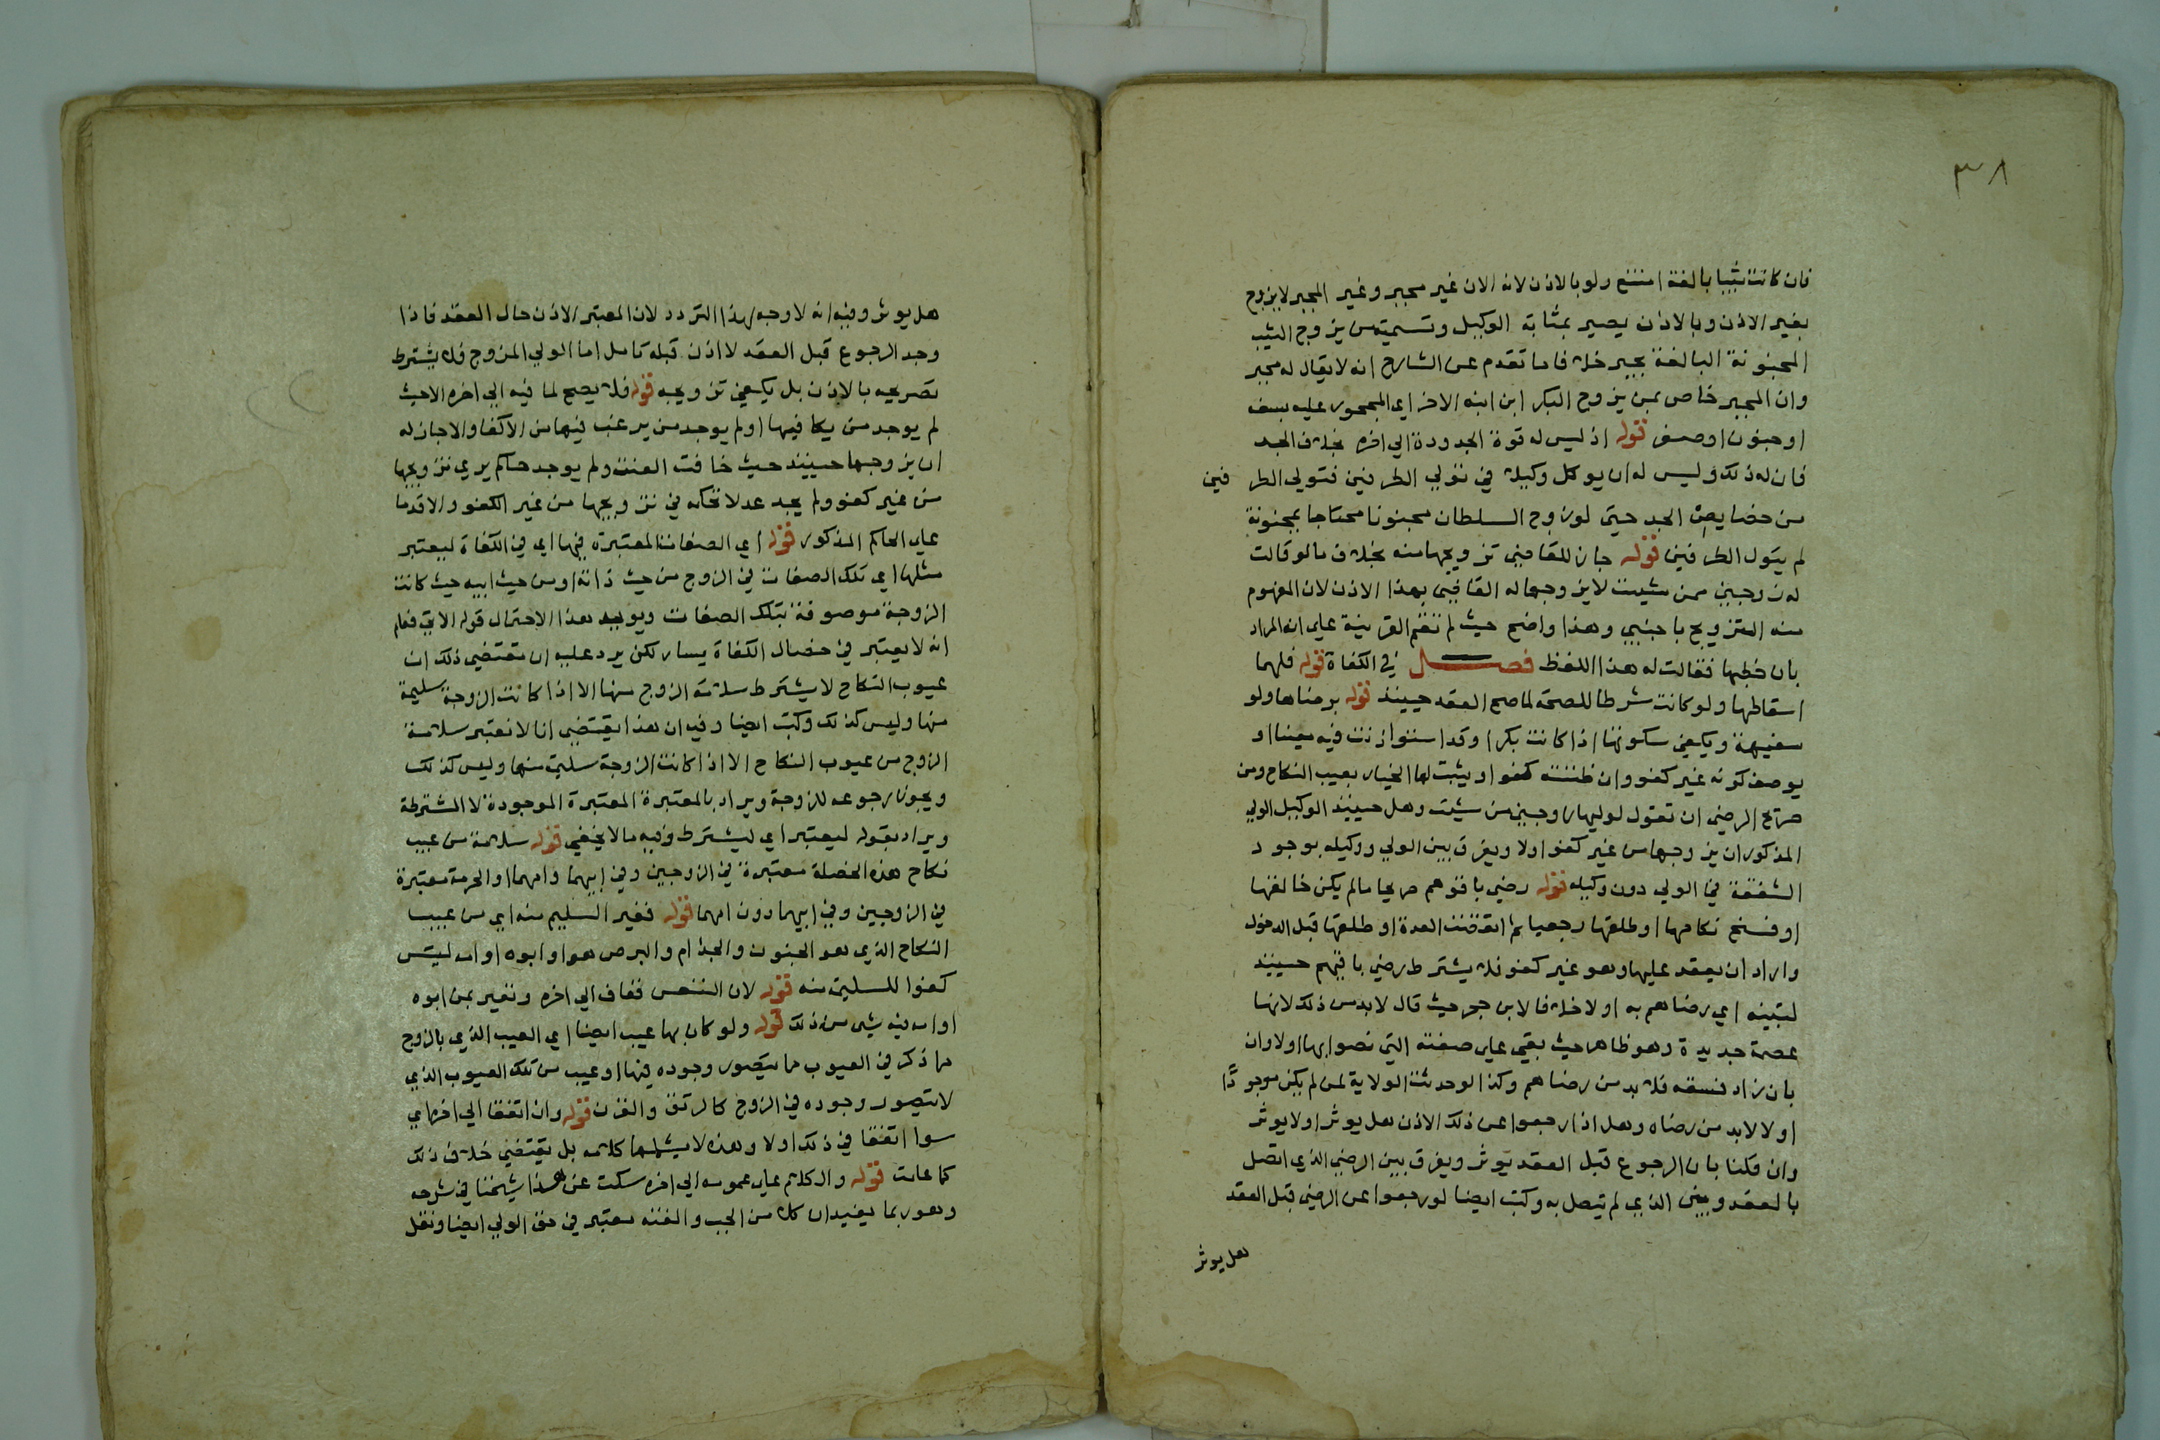 ٣٨
فان كانت ثيبا بالغة امتنع ولو بالاذن لانه الان غير مجبر وغير المجبر لا يزوج
بغير الاذن وبالاذن يصير بمثابة الوكيل وتسميته من يزوج الثيب
المجنونة البالغة بجبر خلاف ما تقدم عن الشارح انه لا يقال له مجبر
وان المجبر خاص بمن يزوج البكر ابن ابنه الاخر اي المحجور عليه بسفه
او جنون او صغر قوله اذ ليس له قوة الجدودة الي اخره بخلاف الجد
فان له ذلك وليس له ان يوكل وكيلا في تولي الطرفين فتولي الطر فين
من خصايص الجد حتي لو زوج السلطان مجنونا محتاجا بمجنونة
لم يتول الطرفين قوله جاز للقاضي تزويجها منه بخلاف ما لو قالت
له زوجني ممن شيت لا يزوجها له القاضي بهذا الاذن لان المفهوم
منه التزويج باجنبي وهذا واضح حيث لم تقم القرينة علي ان المراد
بان خطبها فقالت له هذا اللفظ فصل في الكفاة قوله فلهما
اسقاطها ولو كانت شرطا للصحة لما صح العقد حينيذ قوله برضاها ولو
سفيهة ويكفي سكوتها اذا كانت بكرا وقد استوذنت فيه معينا او
بوصف كونه غير كفو وان ظنته كفوا ويثبت لها الخيار بعيب النكاح ومن
صرايح الرضي ان تقول لوليها زوجني من شيت وهل حينيذ الوكيل الولي
المذكور ان يزوجها من غير كفو اولا ويفرق بين الولي ووكيله بوجود
الشفقة في الولي دون وكيله قوله رضي باقوهم صريحا ما لم يكن خالعها
او فسخ نكاحها او طلقها رجعيا ثم انقضت العدة او طلقها قبل الدخول
واراد ان يعقد عليها وهو غير كفو فلا يشترط رضي باقيهم حينيذ
لتبينه اي رضاهم به اولا خلافا لابن حجر حيث قال لابد من ذلك لانها
عصمة جديدة وهو ظاهر حيث بقي علي صفته التي رضوا بها اولا وان
بان زاد فسقه فلا بد من رضاهم وكذا لو حدثت الولاية لمن لم يكن موجودًا
اولا لابد من رضاه وهل اذا رجعوا عن ذلك الاذن هل يوثر اولا يوثر
وان قلنا بان الرجوع قبل العقد يوثر ويفرق بين الرضي الذي اتصل
بالعقد وبين الذي لم يتصل به وكتب ايضا لو رجعوا عن الرضي قبل العقد
هل يوثر
هل يوثر وفيه انه لا وجه لهذا التردد لان المعتبر الاذن حال العقد فاذا
وجد الرجوع قبل العقد لا اذن قبله كامل اما الولي المزوج فلا يشترط
تصريحه بالاذن بل يكفي تزويجه قوله فلا يصح لما فيه الي اخره الاحيث
لم يوجد من يكافيها او لم يوجد من يرغب فيها من الاكفا والا جاز له
ان يزوجها حينيذ حيث خافت العنت ولم يوجد حاكم يري تزويجها
من غير كفو ولم يجد عدلا تحكمه في تزويجها من غير الكفو والا قدما
علي الحاكم المذكور قوله اي الصفات المعتبرة فيها اي في الكفاة ليعتبر
مثلها اي تلك الصفات في الزوج من حيث ذاته او من حيث ابيه حيث كانت
الزوجة موصوفة بتلك الصفات ويويد هذا الاحتمال قوله الاتي فعلم
انه لا يعتبر في خصال الكفاة يسار لكن يرد عليه ان مقتضي ذلك ان
عيوب النكاح لا يشترط سلامة الزوج منها الا اذا كانت الزوجة سليمة
منها وليس كذلك وكتب ايضا وفيه ان هذا يقتضي انا لا نعتبر سلامة
الزوج من عيوب النكاح الا اذا كانت الزوجة سليمة منها وليس كذلك
ويجوز رجوعه للزوجة ويراد بالمعتبرة المعتبرة الموجودة لا المشترطة
ويراد بقوله ليعتبر اي ليشترط وفيه ما لا يخفي قوله سلامة من عيب
نكاح هذه الخصلة معتبرة في الزوجين وفي ابيهما وامهما والحرمة معتبرة
في الزوجين وفي ابيهما دون امهما قوله فغير السليم منه اي من عيب
النكاح الذي هو الجنون والجذام والبرص هو او ابوه او امه ليس
كفوا للسليمة منه قوله لان النفس تعاف الي اخره وتعير بمن ابوه
او امه فيه شي من ذلك قوله ولو كان بها عيب ايضا اي العيب الذي بالزوج
ما ذكر في العيوب مما يتصور وجوده فيها او عيب من تلك العيوب الذي
لا يتصور وجوده في الزوج كالرتق والقرن قوله وان اتفقا الي اخره اي
سوا اتفقا في ذلك اولا وهذه لا يشملها كلامه بل يقتضي خلاف ذلك
كما علمت قوله والكلام علي عمومه الي اخره سكت عن هذا شيخنا في شرحه
وهو ربما يفيد ان كلا من الجب والعنه معتبر في حق الولي ايضا ونقل